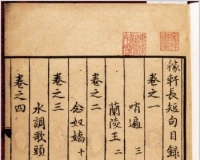 稼軒長短句目錄
卷之一
哨遍三
卷之二
蘭陵王二
卷之三
念奴嬌十
卷之四
水調歌頭